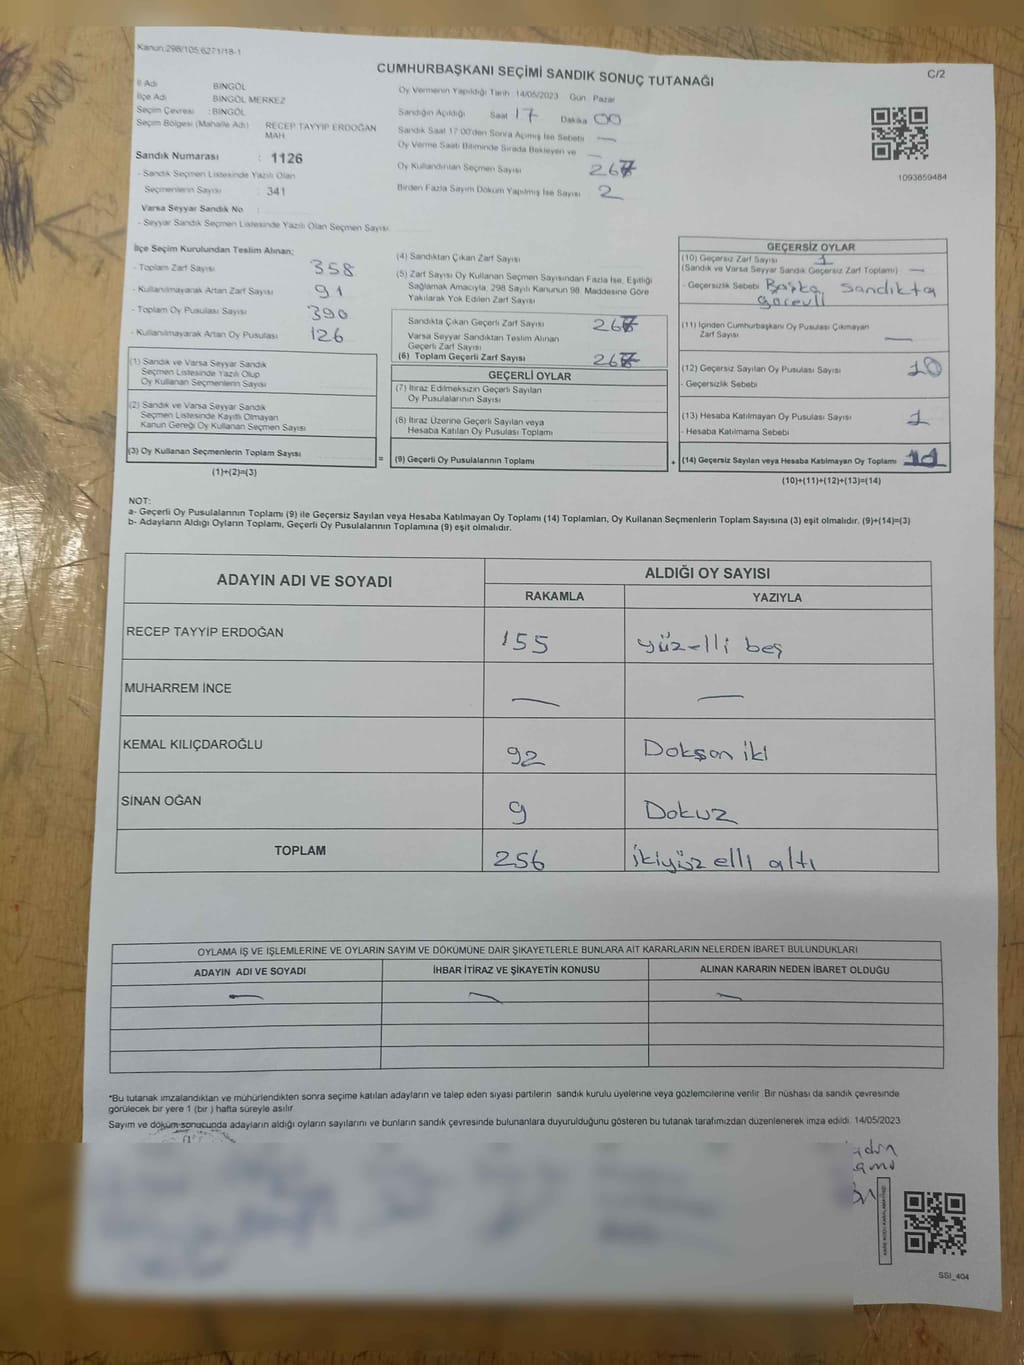 Kanun:298/105;6271/18-1
C/2
CUMHURBAŞKANI SEÇİMİ SANDIK SONUÇ TUTANAĞI
İl Adı BİNGÖL
İlçe Adı BİNGÖL MERKEZ
Seçim Çevresi : BİNGÖL
Seçim Bölgesi (Mahalle Adı) RECEP TAYYİP ERDOĞAN MAH.
Sandık Numarası : 1126
- Sandık Seçmen Listesinde Yazılı Olan
Seçmenlerin Sayısı : 341
Varsa Seyyar Sandık No :
- Seyyar Sandık Seçmen Listesinde Yazılı Olan Seçmen Sayısı
Oy Vermenin Yapıldığı Tarih : 14/05/2023 Gün : Pazar
Sandığın Açıldığı Saat 17 Dakika 00
Sandık Saat 17:00'den Sonra Açılmış İse Sebebi —
Oy Verme Saati Bitiminde Sırada Bekleyen ve —
Oy Kullandırılan Seçmen Sayısı 267
Birden Fazla Sayım Döküm Yapılmış İse Sayısı 2
1093859484
İlçe Seçim Kurulundan Teslim Alınan;
- Toplam Zarf Sayısı 358
- Kullanılmayarak Artan Zarf Sayısı 91
- Toplam Oy Pusulası Sayısı 390
- Kullanılmayarak Artan Oy Pusulası 126
(1) Sandık ve Varsa Seyyar Sandık
Seçmen Listesinde Yazılı Olup
Oy Kullanan Seçmenlerin Sayısı
(2) Sandık ve Varsa Seyyar Sandık
Seçmen Listesinde Kayıtlı Olmayan
Kanun Gereği Oy Kullanan Seçmen Sayısı
(3) Oy Kullanan Seçmenlerin Toplam Sayısı
(1)+(2)=(3)
=
(4) Sandıktan Çıkan Zarf Sayısı
(5) Zarf Sayısı Oy Kullanan Seçmen Sayısından Fazla İse, Eşitliği
Sağlamak Amacıyla, 298 Sayılı Kanunun 98. Maddesine Göre
Yakılarak Yok Edilen Zarf Sayısı
Sandıkta Çıkan Geçerli Zarf Sayısı 267
Varsa Seyyar Sandıktan Teslim Alınan
Geçerli Zarf Sayısı
(6) Toplam Geçerli Zarf Sayısı 267
GEÇERLİ OYLAR
(7) İtiraz Edilmeksizin Geçerli Sayılan
Oy Pusulalarının Sayısı
(8) İtiraz Üzerine Geçerli Sayılan veya
Hesaba Katılan Oy Pusulası Toplamı
(9) Geçerli Oy Pusulalarının Toplamı
+
GEÇERSİZ OYLAR
(10) Geçersiz Zarf Sayısı 1
(Sandık ve Varsa Seyyar Sandık Geçersiz Zarf Toplamı) —
- Geçersizlik Sebebi Başka sandıkta
görevli
(11) İçinden Cumhurbaşkanı Oy Pusulası Çıkmayan
Zarf Sayısı —
(12) Geçersiz Sayılan Oy Pusulası Sayısı 10
- Geçersizlik Sebebi
(13) Hesaba Katılmayan Oy Pusulası Sayısı 1
- Hesaba Katılmama Sebebi
(14) Geçersiz Sayılan veya Hesaba Katılmayan Oy Toplamı 11
(10)+(11)+(12)+(13)=(14)
NOT:
a- Geçerli Oy Pusulalarının Toplamı (9) ile Geçersiz Sayılan veya Hesaba Katılmayan Oy Toplamı (14) Toplamları, Oy Kullanan Seçmenlerin Toplam Sayısına (3) eşit olmalıdır. (9)+(14)=(3)
b- Adayların Aldığı Oyların Toplamı, Geçerli Oy Pusulalarının Toplamına (9) eşit olmalıdır.
ADAYIN ADI VE SOYADI
ALDIĞI OY SAYISI
RAKAMLA YAZIYLA
RECEP TAYYİP ERDOĞAN 155 yüzelli beş
MUHARREM İNCE — —
KEMAL KILIÇDAROĞLU 92 Dokşan iki
SİNAN OĞAN 9 Dokuz
TOPLAM 256 ikiyüz elli altı
OYLAMA İŞ VE İŞLEMLERİNE VE OYLARIN SAYIM VE DÖKÜMÜNE DAİR ŞİKAYETLERLE BUNLARA AİT KARARLARIN NELERDEN İBARET BULUNDUKLARI
ADAYIN ADI VE SOYADI İHBAR İTİRAZ VE ŞİKAYETİN KONUSU ALINAN KARARIN NEDEN İBARET OLDUĞU
— — —
*Bu tutanak imzalandıktan ve mühürlendikten sonra seçime katılan adayların ve talep eden siyasi partilerin sandık kurulu üyelerine veya gözlemcilerine verilir. Bir nüshası da sandık çevresinde
görülecek bir yere 1 (bir ) hafta süreyle asılır.
Sayım ve döküm sonucunda adayların aldığı oyların sayılarını ve bunların sandık çevresinde bulunanlara duyurulduğunu gösteren bu tutanak tarafımızdan düzenlenerek imza edildi. 14/05/2023
SSI_404